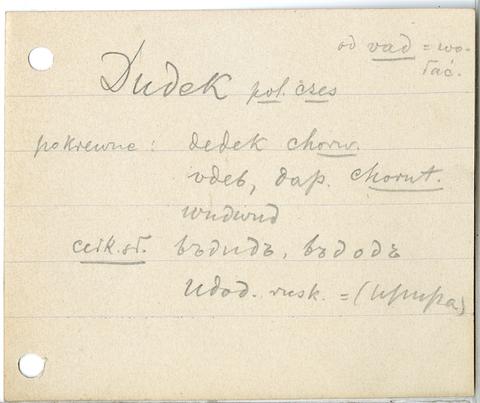 od vad = wo-
łać.
Dudek pol. czes
pokrewne: dedek chorw.
vdeb, dap. chorut.
wudwud
cerk. sł. въдидъ, въдодъ
Udod. rusk. = (upupa)